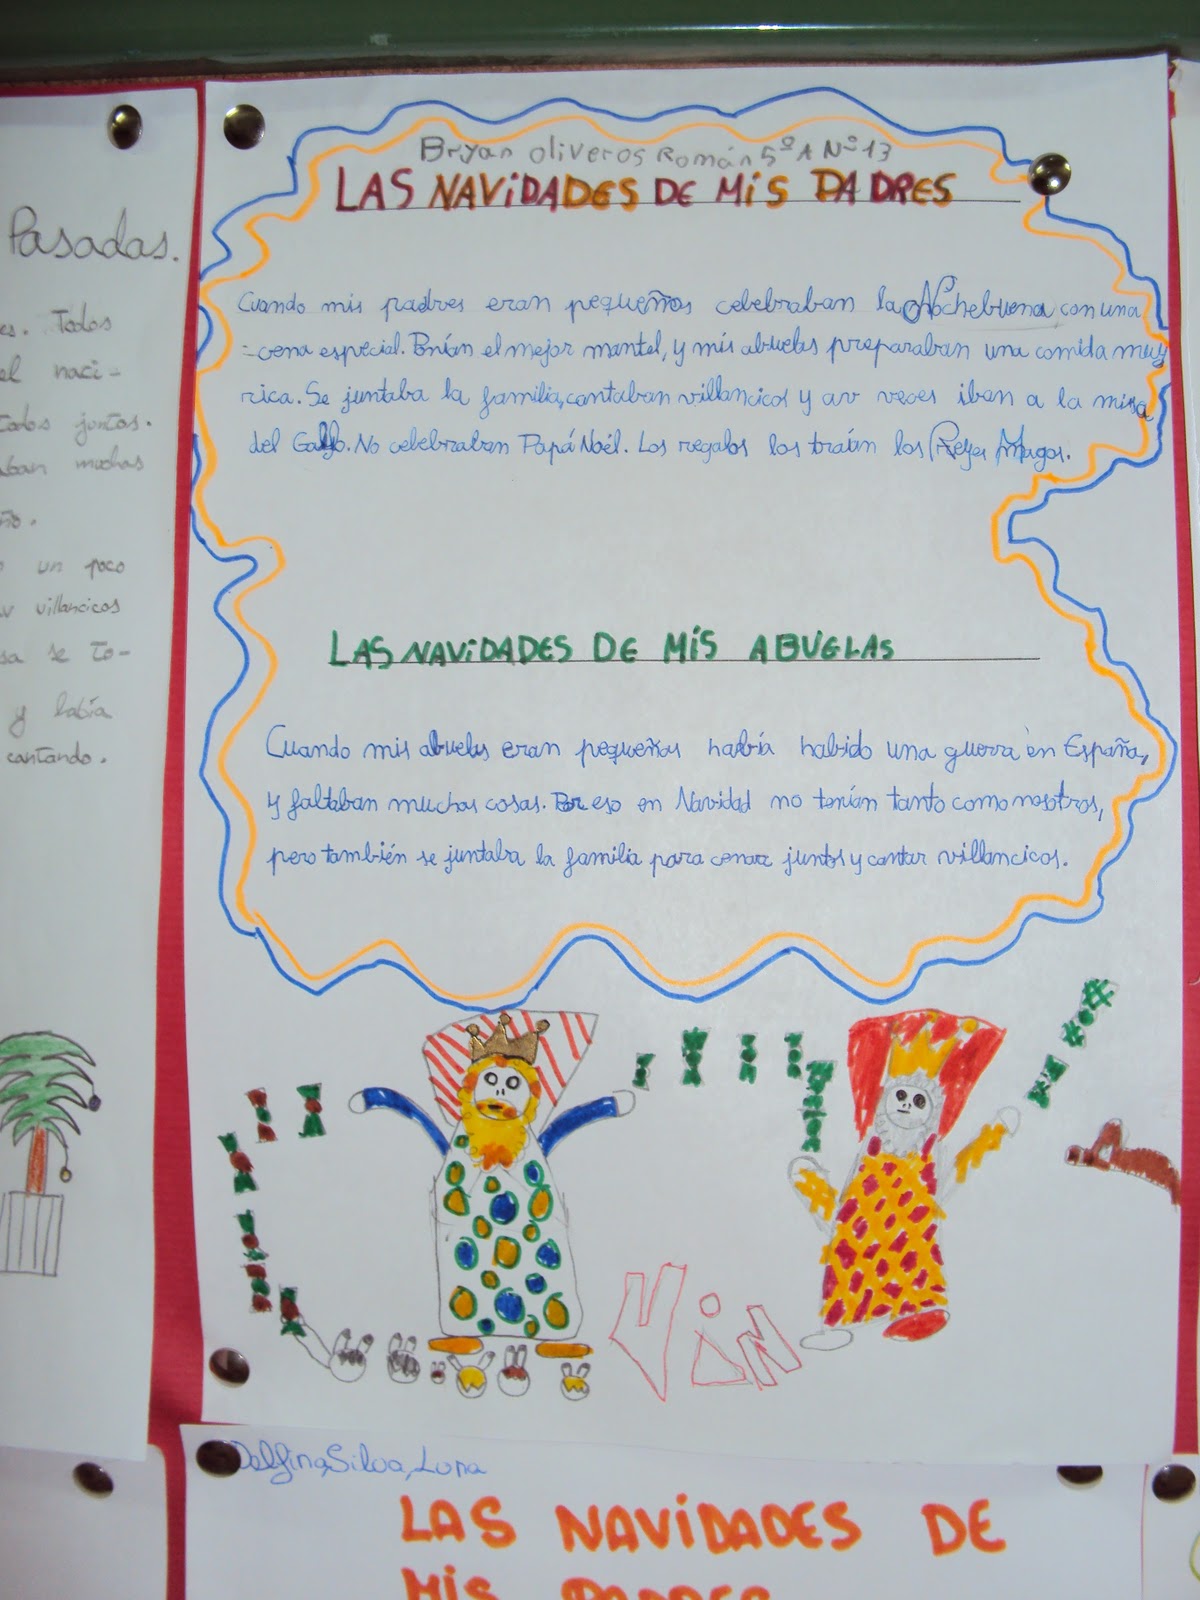 Pasadas.
es. Todos
el naci-
todos juntos.
aban muchas
ño.
un poco
villancicos
sa se to-
y había
cantando.
Bryan Oliveros Román 5º A Nº 13
LAS NAViDADES DE MiS PADRES
Cuando mis padres eran pequeños cebebraban la Nochebuena con una
cena especial. Ponían el mejor mantel, y mis abuelas preparaban una comida muy
rica. Se juntaba la familia, cantaban villancicos y av veces iban a la misa
del Gallo. No celebraban Papá Noél. Los regalos los traían los Reyes Magos.
LAS NAViDADES DE MiS ABUELAS
Cuando mis abuelas eran pequeñas había habido una guerra en España,
y faltaban muchas cosas. Por eso en Navidad no tenían tanto como nosotros,
pero también se juntaba la familia para cenar juntos y cantar villancicos.
Delfina, Silva, Luna
LAS NAViDADES DE
MiS PADRES